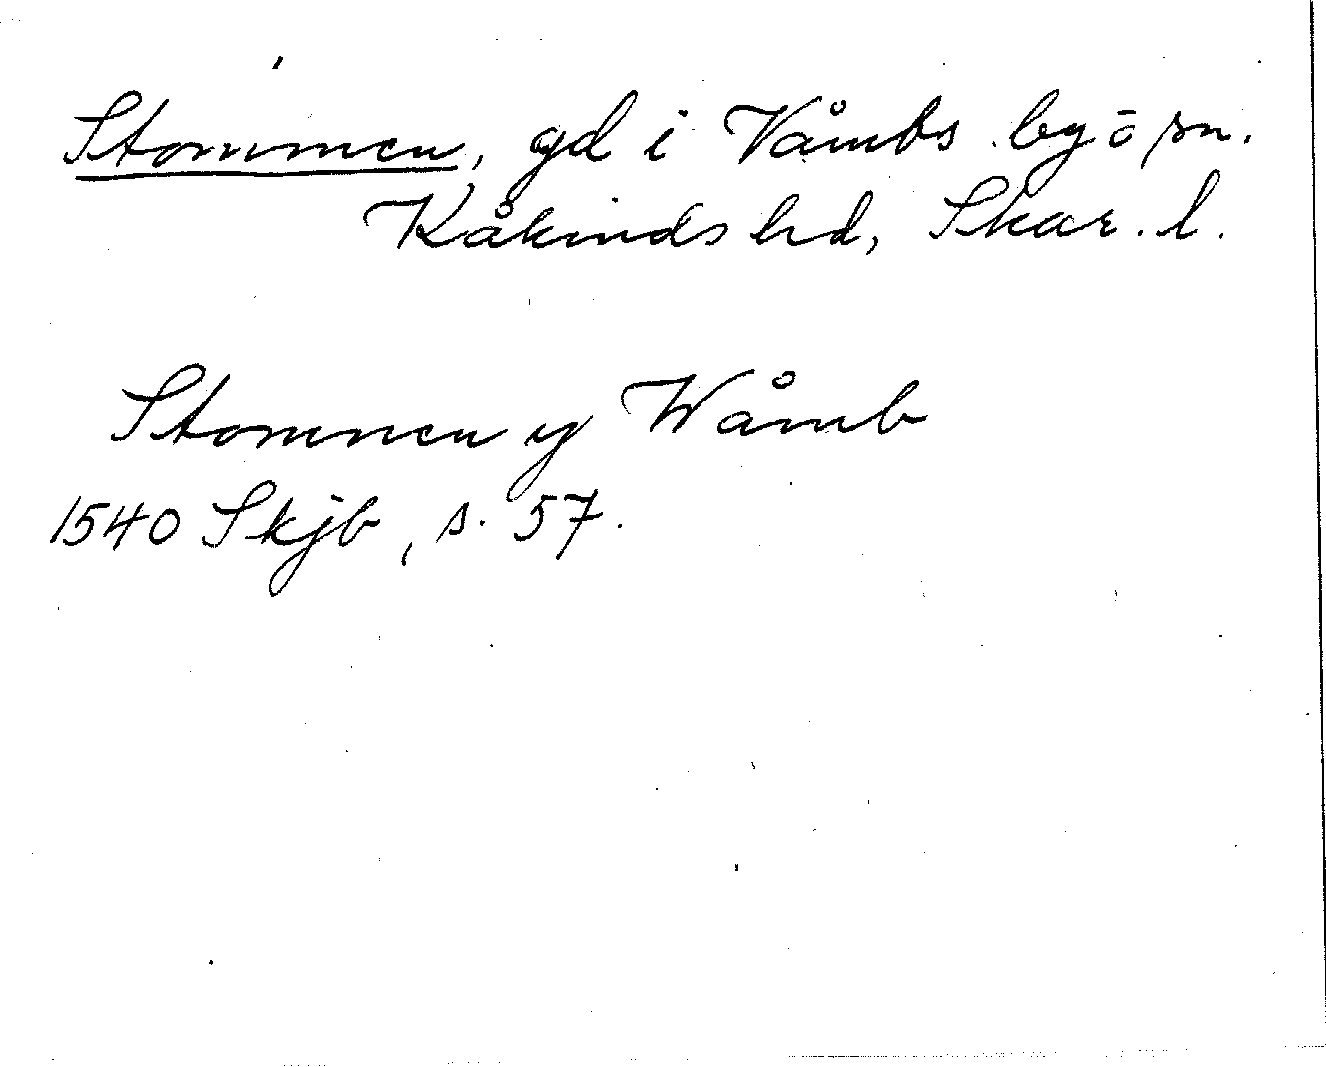 Stommen, gd i Våmbs by o sn.
Kåkinds hd, Skar. l.
Stommen y Wåmb
1540 Skjb, s. 57.